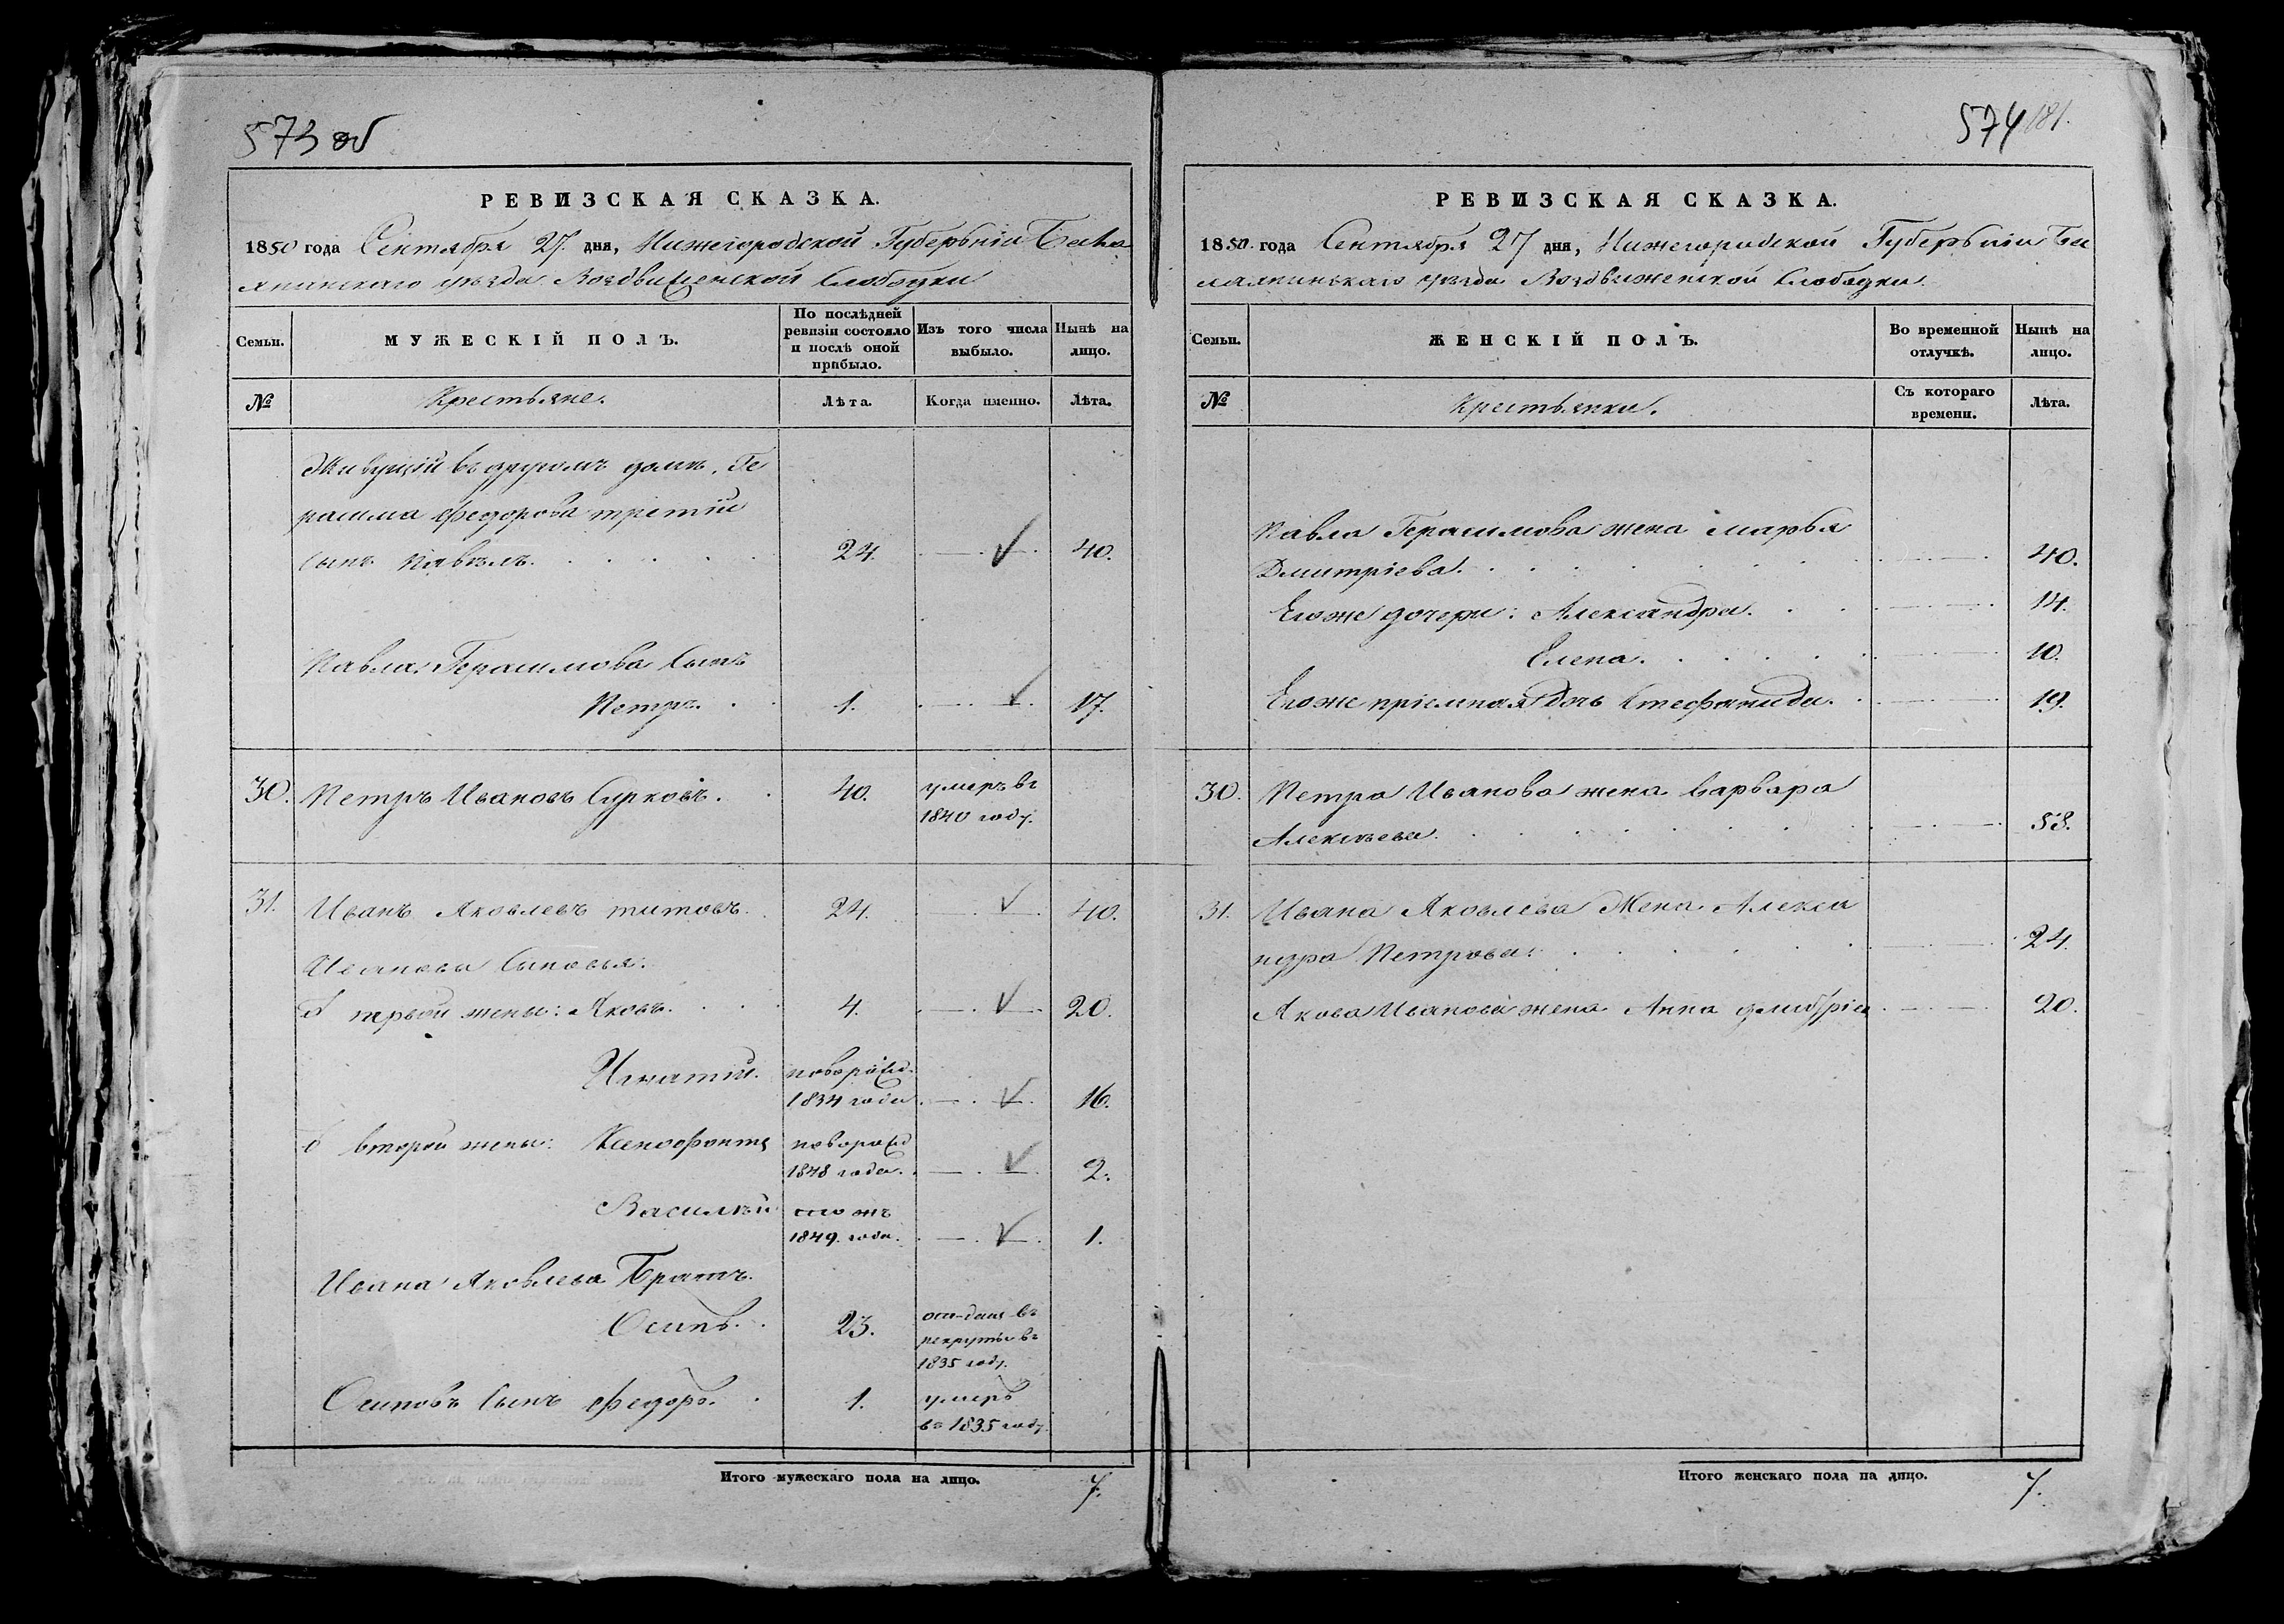 573 об
РЕВИЗСКАЯ СКАЗКА.
1850 года Сентября 27. дня, Нижегородской Губерніи Бала
хнинскаго уезда Воздвиженской Слободки
Семьи.
МУЖЕСКІЙ ПОЛЪ.
По послѣдней ревизіи состояло и послѣ оной прибыло.
Изъ того числа выбыло.
Нынѣ на лицо.
№
Крестьяне.
Лѣта.
Когда именно.
Лѣта.
Живущій въ другомъ доме, Ге
расима Федорова третій
сынъ Павелъ. 24. 40.
Павла Герасимова Сынъ
Петръ. 1. 17.
30. Петръ Ивановъ Сурковъ. 40. умеръ въ
1840 году.
31. Иванъ Яковлевъ титовъ. 24. 40.
Ивановы Сыновья:
от первой жены: Яковъ. 4. 20.
Игнатій. новорожд.
1834 года 16.
от второй жены: Ксенофонтъ новорожд
1848 года. 2.
Василій тожъ
1849. года. 1.
Ивана Яковлева Братъ.
Осипъ. 23. отданъ въ
рекруты въ
1835 году.
Осиповъ Сынъ Федоръ. 1. умеръ
въ 1835 году
Итого мужескаго пола на лицо. 7.
574 181.
РЕВИЗСКАЯ СКАЗКА.
1850. года Сентября 27 дня, Нижегородской Губерніи Ба
лахнинскаго уезда Воздвиженской Слободки.
Семьи.
ЖЕНСКІЙ ПОЛЪ.
Во временной отлучкѣ.
Нынѣ на лицо.
№
Крестьянки.
Съ котораго времени.
Лѣта.
Павла Герасимова жена марфа
Дмитріева. 40.
Егоже дочери: Александра. 14.
Елена. 10.
Егоже пріемная дочь Стефанида. 19.
30. Петра Иванова жена варвара
Алексеева. 53.
31. Ивана Яковлева Жена Алекса
ндра Петрова. 24.
Якова Иванова жена Анна дмитріев 20.
Итого женскаго пола на лицо. 7.